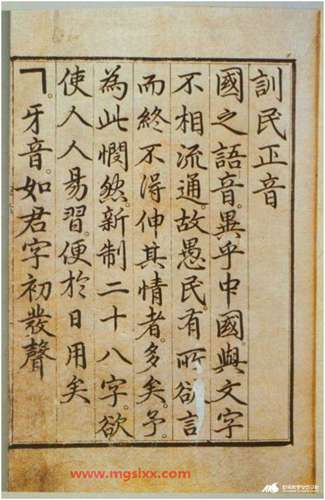 訓民正音
國之語音。異乎中國。與文字
不相流通。故愚民。有所欲言
而終不得伸其情者。多矣。予。
為此憫然。新制二十八字。欲
使人人易習。便於日用矣
ㄱ。牙音。如君字初發聲
www.mgslxx.com